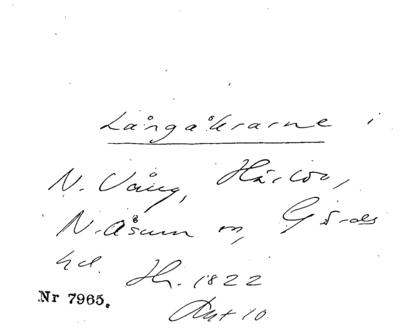 Långåkrarne i
N. Vång, Härlöv,
N. Åsum m, Gärds
hd. Hr. 1822
Akt 10
Nr 7965.